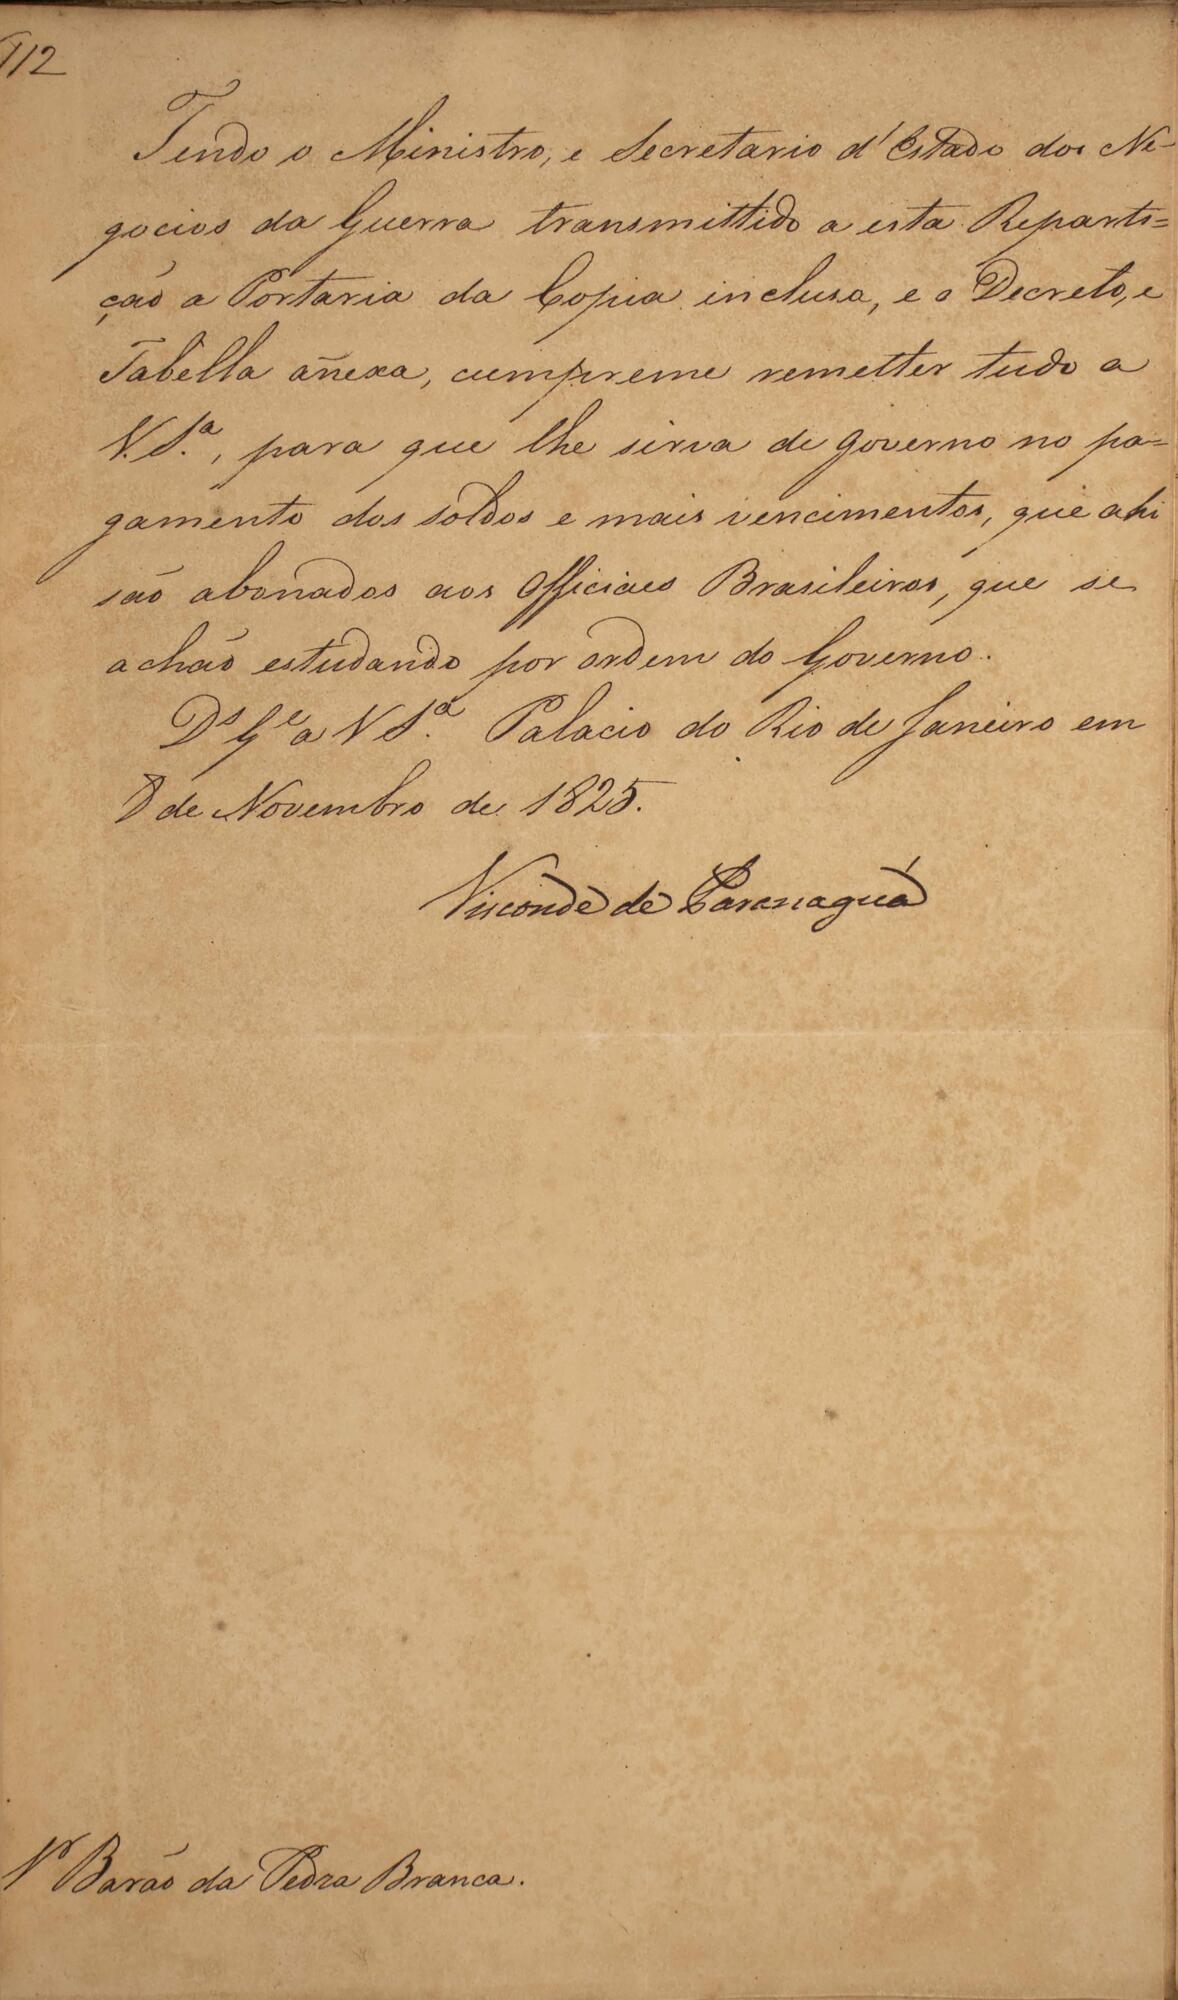 112
Tendo o Ministro, e Secretario d'Estado dos Ne-
gocios da Guerra transmittido a esta Reparti=
ção a Portaria da Copia inclusa, e o Decreto, e
Tabella añexa, cumpreme remetter tudo a
V. S.ª, para que lhe sirva de governo no pa=
gamento dos soldos e mais vencimentos, que ahi
são abonados aos Officiaes Brasileiros, que se
achão estudando por ordem do Governo.
Ds Ge a V S.ª Palacio do Rio de Janeiro em
8 de Novembro de 1825.
Visconde de Paranaguá
Sr Barão da Pedra Branca.